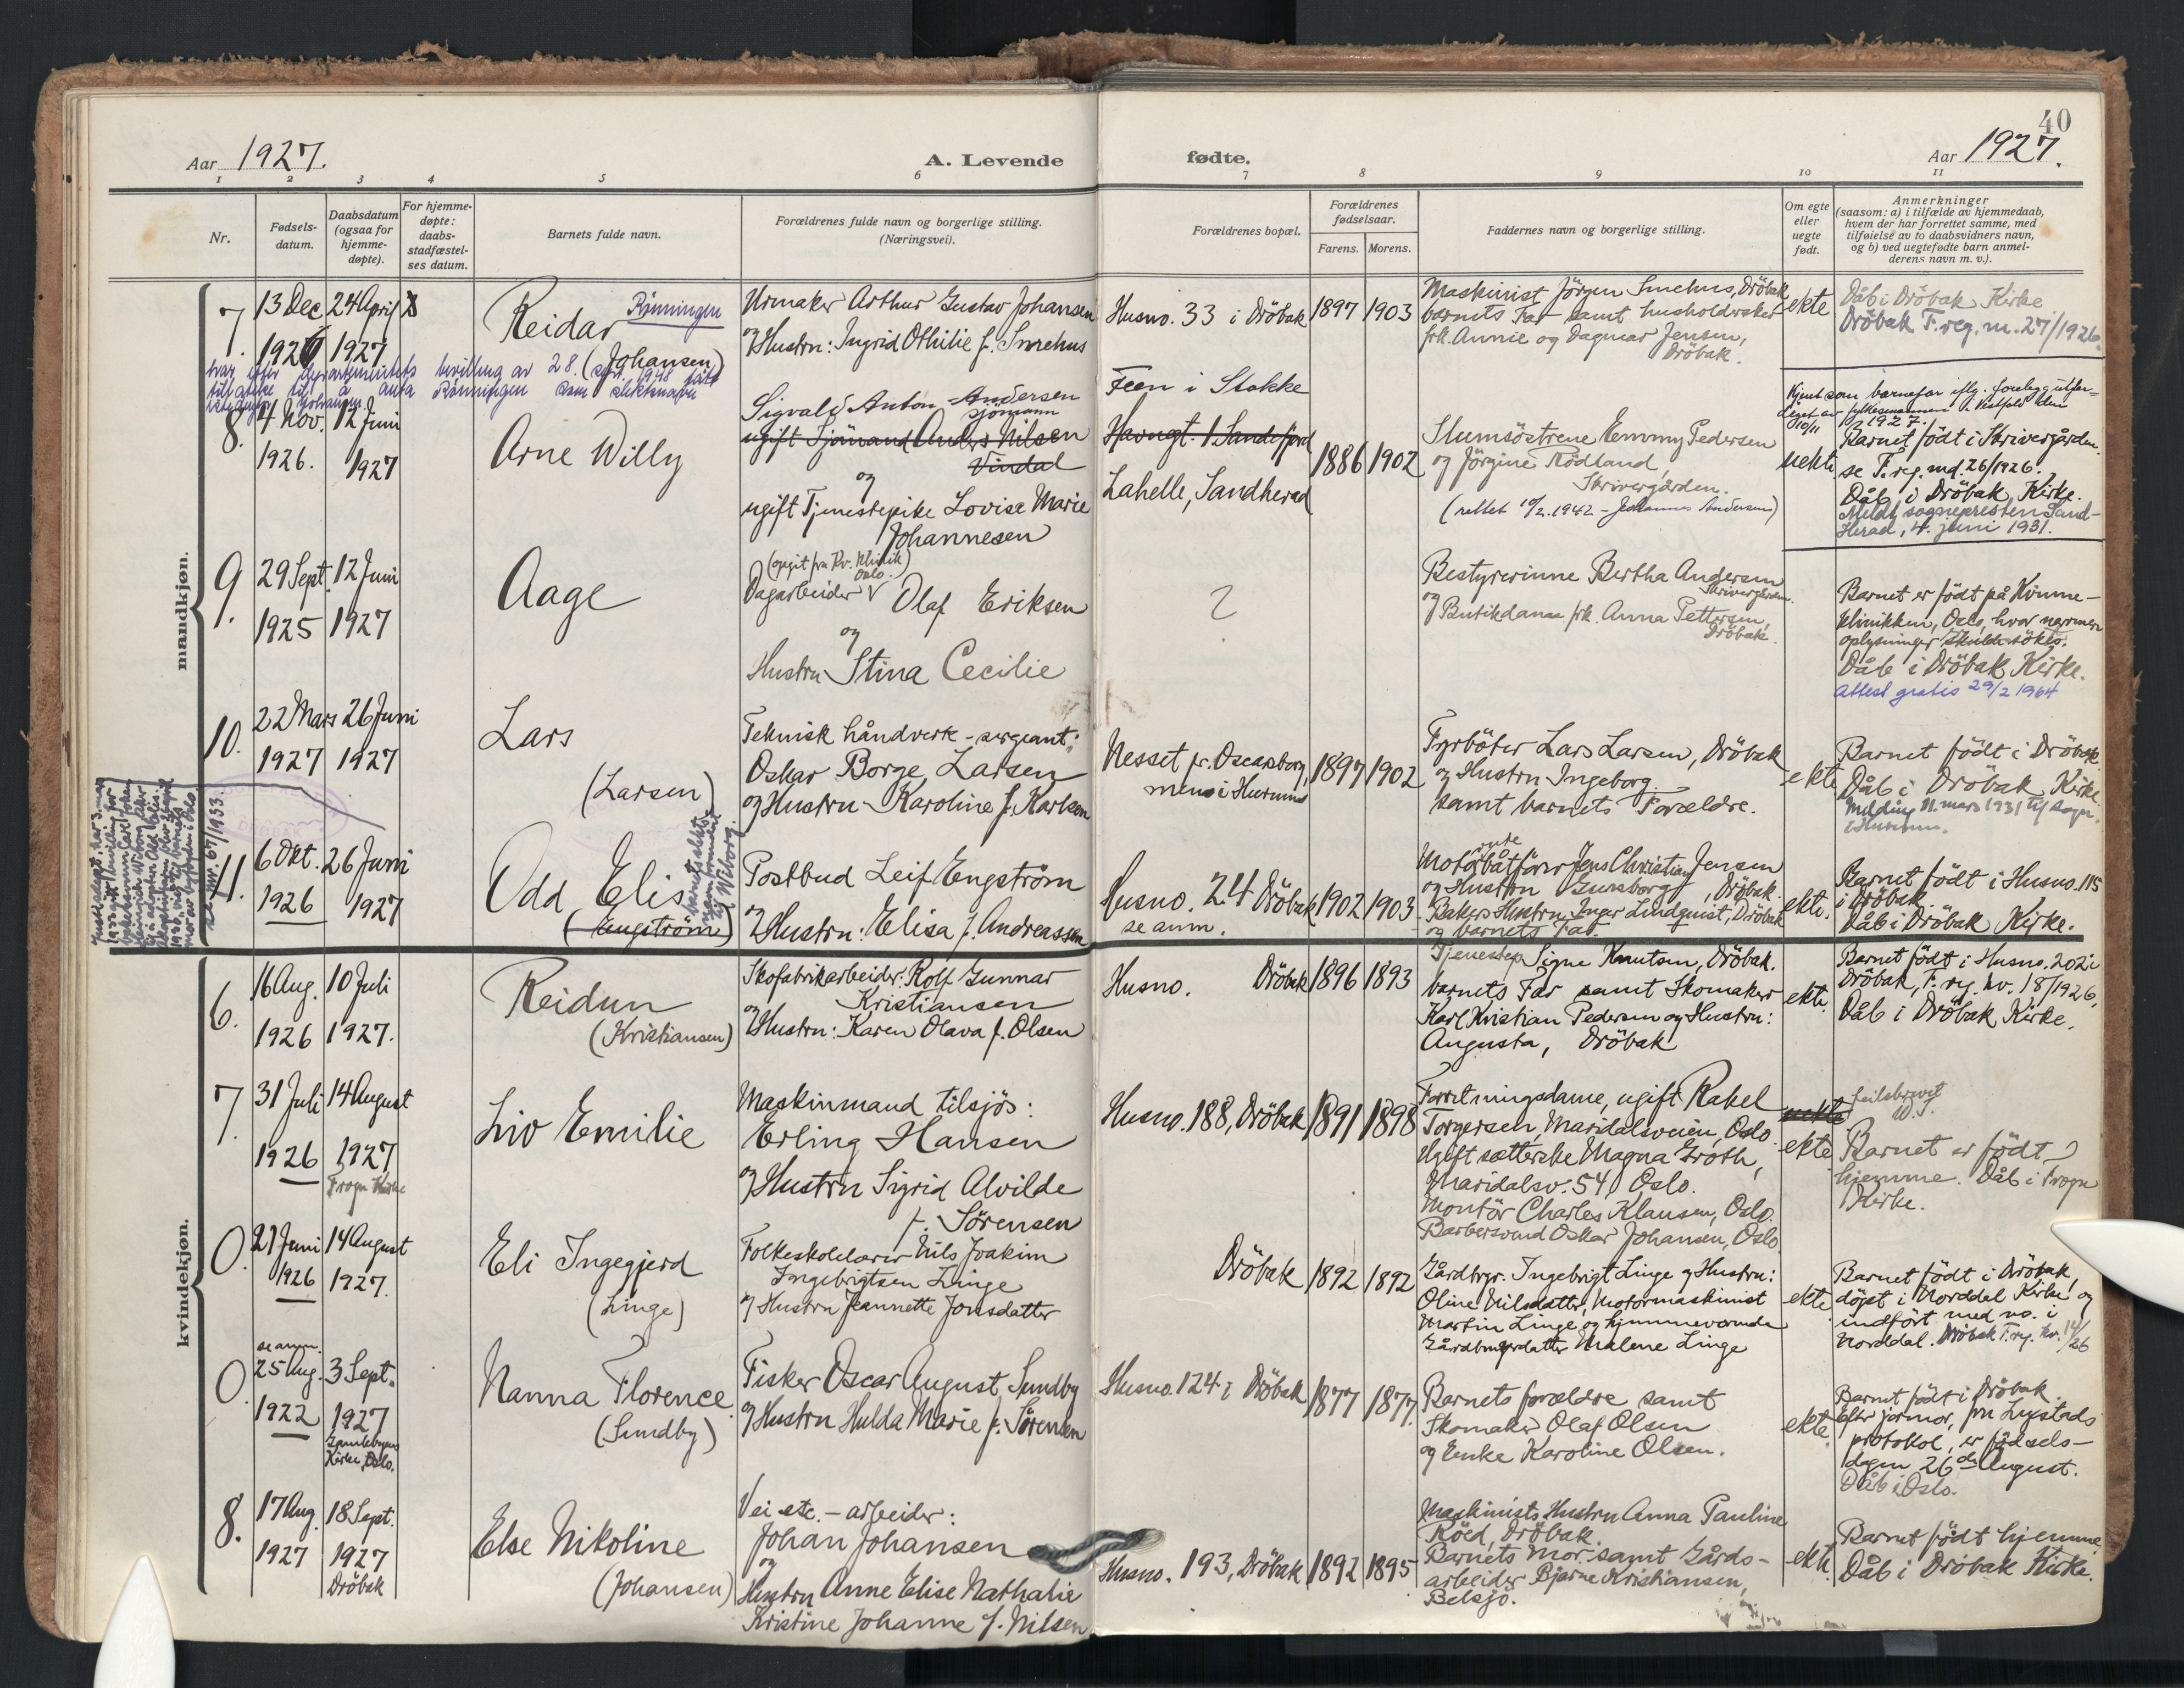 40
Aar 1927.
A. Levende
fødte.
Aar 1927.
1 2 3 4 5 6 7 8 9 10 11
Nr.
Fødsels-
datum.
Daabsdatum
(ogsaa for
hjemme-
døpte).
For hjemme-
døpte:
daabs-
stadfæstel-
ses datum.
Barnets fulde navn.
Forældrenes fulde navn og borgerlige stilling.
(Næringsvei).
Forældrenes bopæl.
Forældrenes
fødselsaar.
Farens. Morens.
Faddernes navn og borgerlige stilling.
Om egte
eller
uegte
født.
Anmerkninger
(saasom: a) i tilfælde av hjemmedaab,
hvem der har forrettet samme, med
tilføielse av to daabsvidners navn,
og b) ved uegtefødte barn anmel-
derens navn m. v.).
mandkjøn.
7.
13 Dec
24 April
1927
Reidar
Rönningen
(Johansen)
Urmaker Arthur Gustav Johansen
og Hustru: Ingrid Othilie f. Smehus
Husno. 33 i Dröbak
1897
1903
Maskinist Jörgen Smehus, Dröbak
barnets Far samt husholderske
frk. Annie og Dagmar Jensen,
Dröbak.
ekte
Dåb i Dröbak Kirke
Dröbak F.reg. m. 27/1926.
bevilling av 28. sept. 1948
Rönningen som slektsnavn
8.
4 Nov.
1926.
12 Juni
1927
Arne Willy
Sigvald Anton Andersen
sjömann
ugift Sjömand Anders Nilsen
Vindal
og
ugift Tjenestepike Lovise Marie
Johannesen
Feen i Stokke
Havngt. 1 Sandefjord
Lahelle, Sandherad
1886
1902
Slumsöstrene Emmy Pedersen
og Jörgine Rödland,
Skrivergården.
(rettet 10/2. 1942 - Johannes Andersen)
uekte
10/11 1927.
Barnet födt i Skrivergården.
se F. reg. md. 26/1926.
Dåb i Dröbak Kirke.
Meldt sognepresten Sand-
Herad, 4. juni 1931.
9.
29 Sept.
1925
12 Juni
1927
Aage
(opgit fra Kv. Klinik
Oslo.)
Dagarbeider Olaf Eriksen
og
Hustru Stina Cecilie
?
Bestyrerinne Bertha Andersen
Skrivergården.
og Butikdame frk. Anna Pettersen,
Dröbak.
Barnet er födt på Kvinne-
klinikken, Oslo, hvor nærmere
oplysninger skulde sökes.
Dåb i Dröbak Kirke.
Attest gratis 29/2 1964
10.
22 Mars
1927
26 Juni
1927
Lars
(Larsen)
Teknisk håndverk-sergeant:
Oskar Borge Larsen
og Hustru Karoline f. Karlsen
Nesset pr. Oscarsborg,
men i Hurum
1897
1902
Fyrböter Lars Larsen, Dröbak
og Hustru Ingeborg
samt barnets Forældre.
ekte
Barnet födt i Dröbak.
Dåb i Dröbak Kirke.
Melding 11. mars 1931 til sogn.
i Hurum.
11.
6 Okt.
1926
26 Juni
1927
Odd Elis
(Engström)
Postbud Leif Engström
og Hustru: Elisa f. Andreassen
Husno. 24 Dröbak
se anm.
1902
1903
Motorbåtförer Jens Christian Jensen
og Hustru Gunborg, Dröbak.
Bakers Hustru Inger Lindquist, Dröbak
og barnets Far.
ekte.
Barnet födt i Husno. 115
i Dröbak
Dåb i Dröbak Kirke.
kvindekjøn.
6.
16 Aug.
1926
10 Juli
1927.
Reidun
(Kristiansen)
Skofabrikarbeider: Rolf Gunnar
Kristiansen
og Hustru: Karen Olava f. Olsen
Husno. Dröbak
1896
1893
Tjenestep. Signe Knutsen, Dröbak.
barnets Far samt Skomaker
Karl Kristian Pedersen og Hustru:
Augusta, Dröbak
ekte.
Barnet födt i Husno. 202 i
Dröbak, F. reg. kv. 18/1926.
Dåb i Dröbak Kirke.
7.
31 Juli
1926
14 August
1927
Frogn Kirke
Liv Emilie
Maskinmand tilsjös:
Erling Hansen
og Hustru Sigrid Alvilde
f. Sörensen
Husno. 188, Dröbak
1891
1898
Forretningsdame, ugift Rakel
Torgersen, Maridalsveien, Oslo.
Ugift sætterske Magna Groth,
Maridalsv. 54, Oslo.
Montör Charles Klausen, Oslo.
Barbersvend Oskar Johansen, Oslo.
uekte
ekte
feilskrevet
Barnet er födt
hjemme. Dåb i Frogn
Kirke.
0.
21 Juni
1926
14 August
1927.
Eli Ingegjerd
(Linge)
Folkeskolelærer Nils Joakim
Ingebrigtsen Linge
og Hustru Jeannette Jonsdatter
Dröbak
1892
1892
Gårdbrgr. Ingebrigt Linge og Hustru:
Oline Nilsdatter, Motormaskinist
Martin Linge og hjemmeværende
Gårdbrugerdatter Malene Linge
ekte
Barnet födt i Dröbak,
döpt i Norddal Kirke og
indfört med no. i
Norddal. Dröbak F. reg. kv. 14/26
0.
se anm.
25 Aug.
1922
3 Sept.
1927
Kirke, Oslo.
Nanna Florence
(Sundby)
Fisker Oscar August Sundby
og Hustru Hulda Marie f. Sörensen
Husno. 124 i Dröbak
1877
1877.
Barnets forældre samt
Skomaker Olaf Olsen
og Enke Karoline Olsen.
ekte
Barnet födt i Dröbak.
Efter jormor, fru Lystads
protokol, er födsels-
dagen 26de August.
Dåb i Oslo.
8.
17 Aug.
1927
18 Sept.
1927
Dröbak
Else Nikoline
(Johansen)
Vei etc. - arbeider:
Johan Johansen
og
Hustru Anne Elise Nathalie
Kristine Johanne f. Nilsen
Husno. 193, Dröbak
1892
1895
Maskinists Hustru Anna Pauline
Röed, Dröbak.
Barnets Mor samt Gårds-
arbeider Bjarne Kristiansen,
Belsjö.
ekte.
Barnet födt hjemme.
Dåb i Dröbak Kirke.